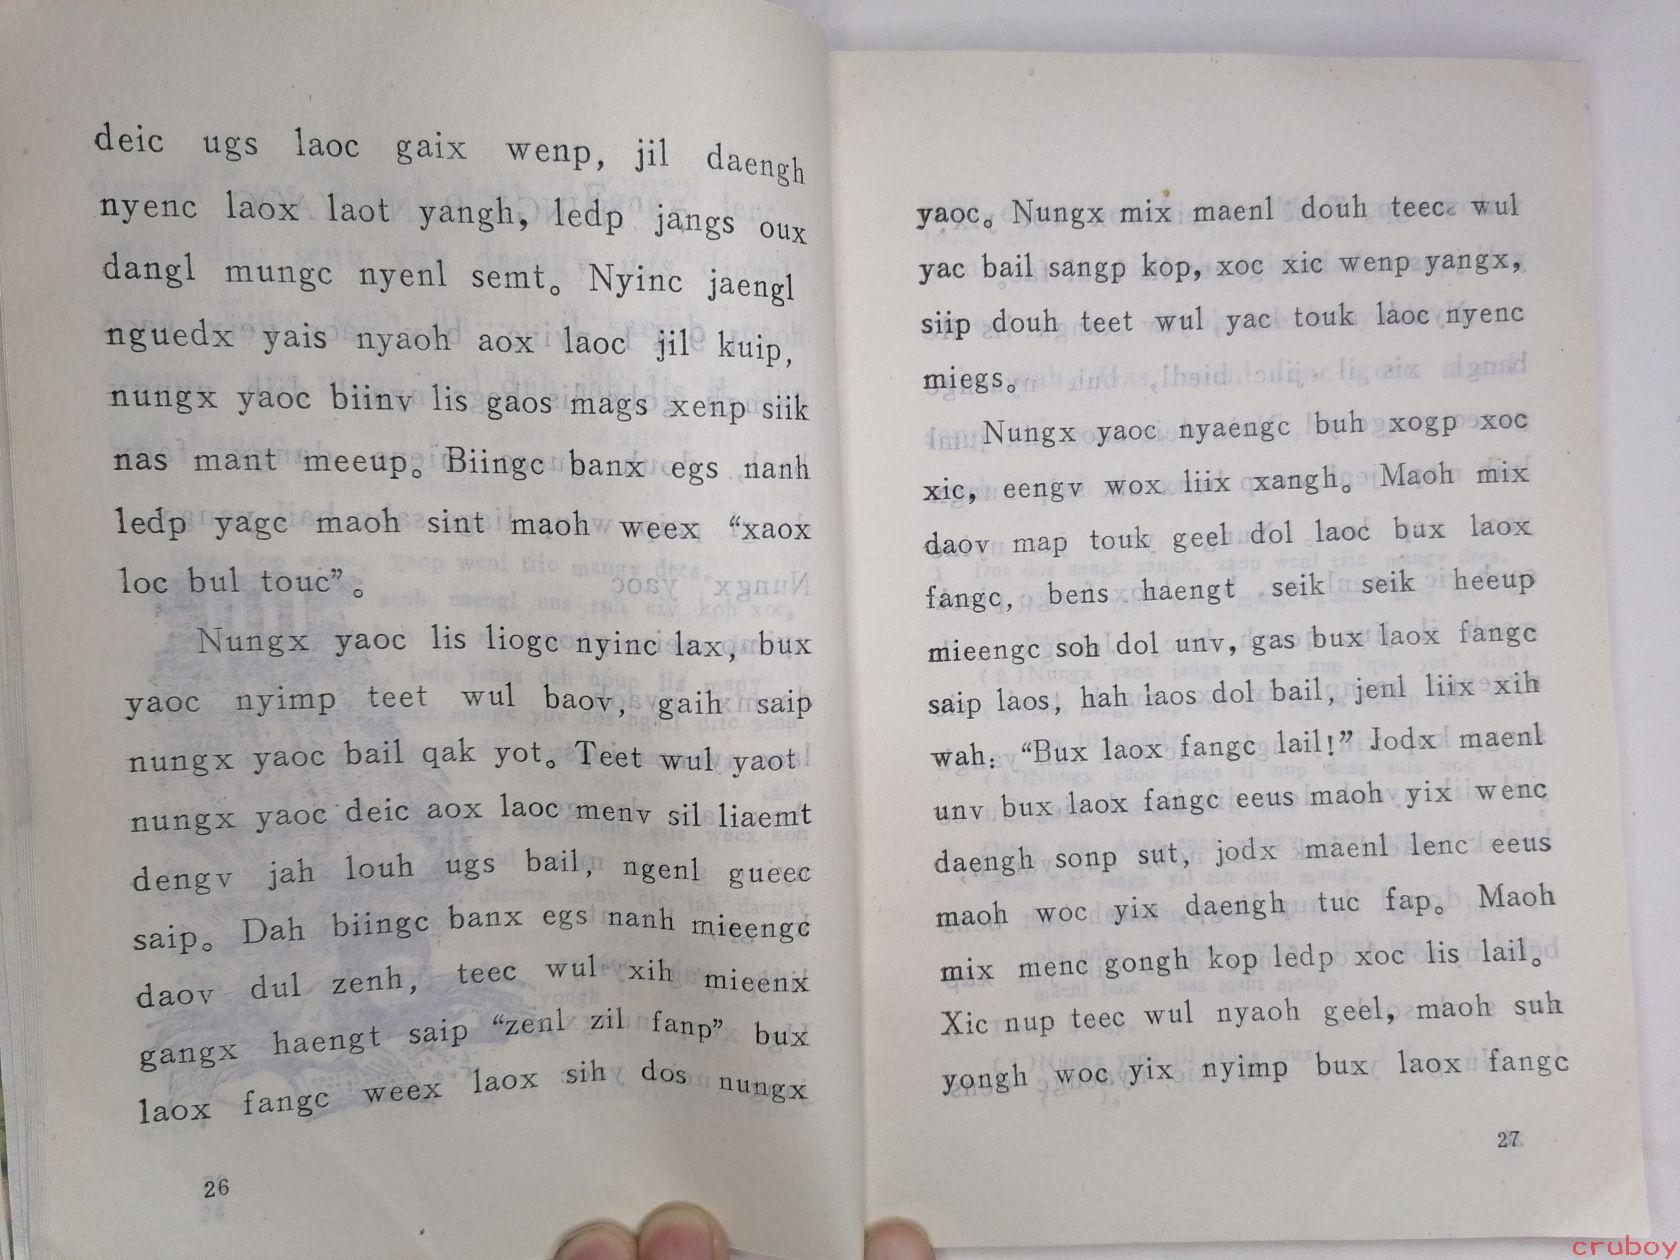 deic ugs laoc gaix wenp, jil daengh
nyenc laox laot yangh, ledp jangs oux
dangl mungc nyenl semt。 Nyinc jaengl
nguedx yais nyaoh aox laoc jil kuip,
nungx yaoc biinv lis gaos mags xenp siik
nas mant meeup。 Biingc banx egs nanh
ledp yagc maoh sint maoh weex “xaox
loc bul touc”。
Nungx yaoc lis liogc nyinc lax, bux
yaoc nyimp teet wul baov, gaih saip
nungx yaoc bail qak yot。 Teet wul yaot
nungx yaoc deic aox laoc menv sil liaemt
dengv jah louh ugs bail, ngenl gueec
saip。 Dah biingc banx egs nanh mieengc
daov dul zenh, teec wul xih mieenx
gangx haengt saip “zenl zil fanp” bux
laox fangc weex laox sih dos nungx
26
yaoc。 Nungx mix maenl douh teec wul
yac bail sangp kop, xoc xic wenp yangx,
siip douh teet wul yac touk laoc nyenc
miegs。
Nungx yaoc nyaengc buh xogp xoc
xic, eengv wox liix xangh。 Maoh mix
daov map touk geel dol laoc bux laox
fangc, bens haengt seik seik heeup
mieengc soh dol unv, gas bux laox fangc
saip laos, hah laos dol bail, jenl liix xih
wah: “Bux laox fangc lail!” Jodx maenl
unv bux laox fangc eeus maoh yix wenc
daengh sonp sut, jodx maenl lenc eeus
maoh woc yix daengh tuc fap。 Maoh
mix menc gongh kop ledp xoc lis lail。
Xic nup teec wul nyaoh geel, maoh suh
yongh woc yix nyimp bux laox fangc
27
cruboy